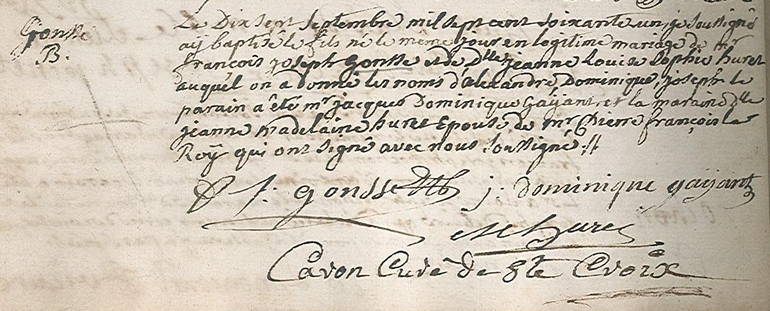 Gonsse
B.
Le Dix sept septembre mil sept cent soixante un, je soussigné
aÿ baptisé le fils né le même jour en legitime mariage de Mr
françois joseph Gonsse et de Dlle jeanne Louise Sophie huret
auquel on a donné les noms d'alexandre Dominique, joseph. le
parain a été mr jacques Dominique Gayant, et la maraine dlle
jeanne Madelaine huret Epouse de mr Pierre françois le
Roÿ qui ont signé avec nous soussigné
f: j: gonsse j: dominique gayant
huret
Cavon Curé de Ste Croix